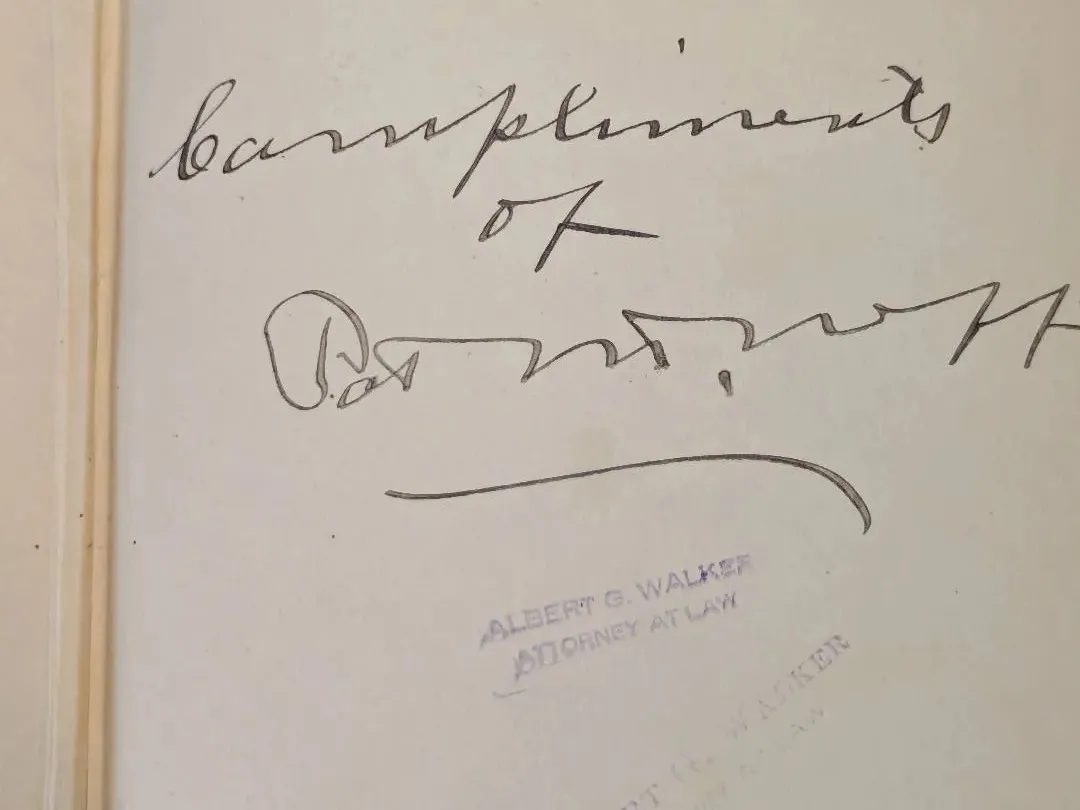 Compliments
of
Pat M. Neff
ALBERT G. WALKER
ATTORNEY AT LAW
WALKER